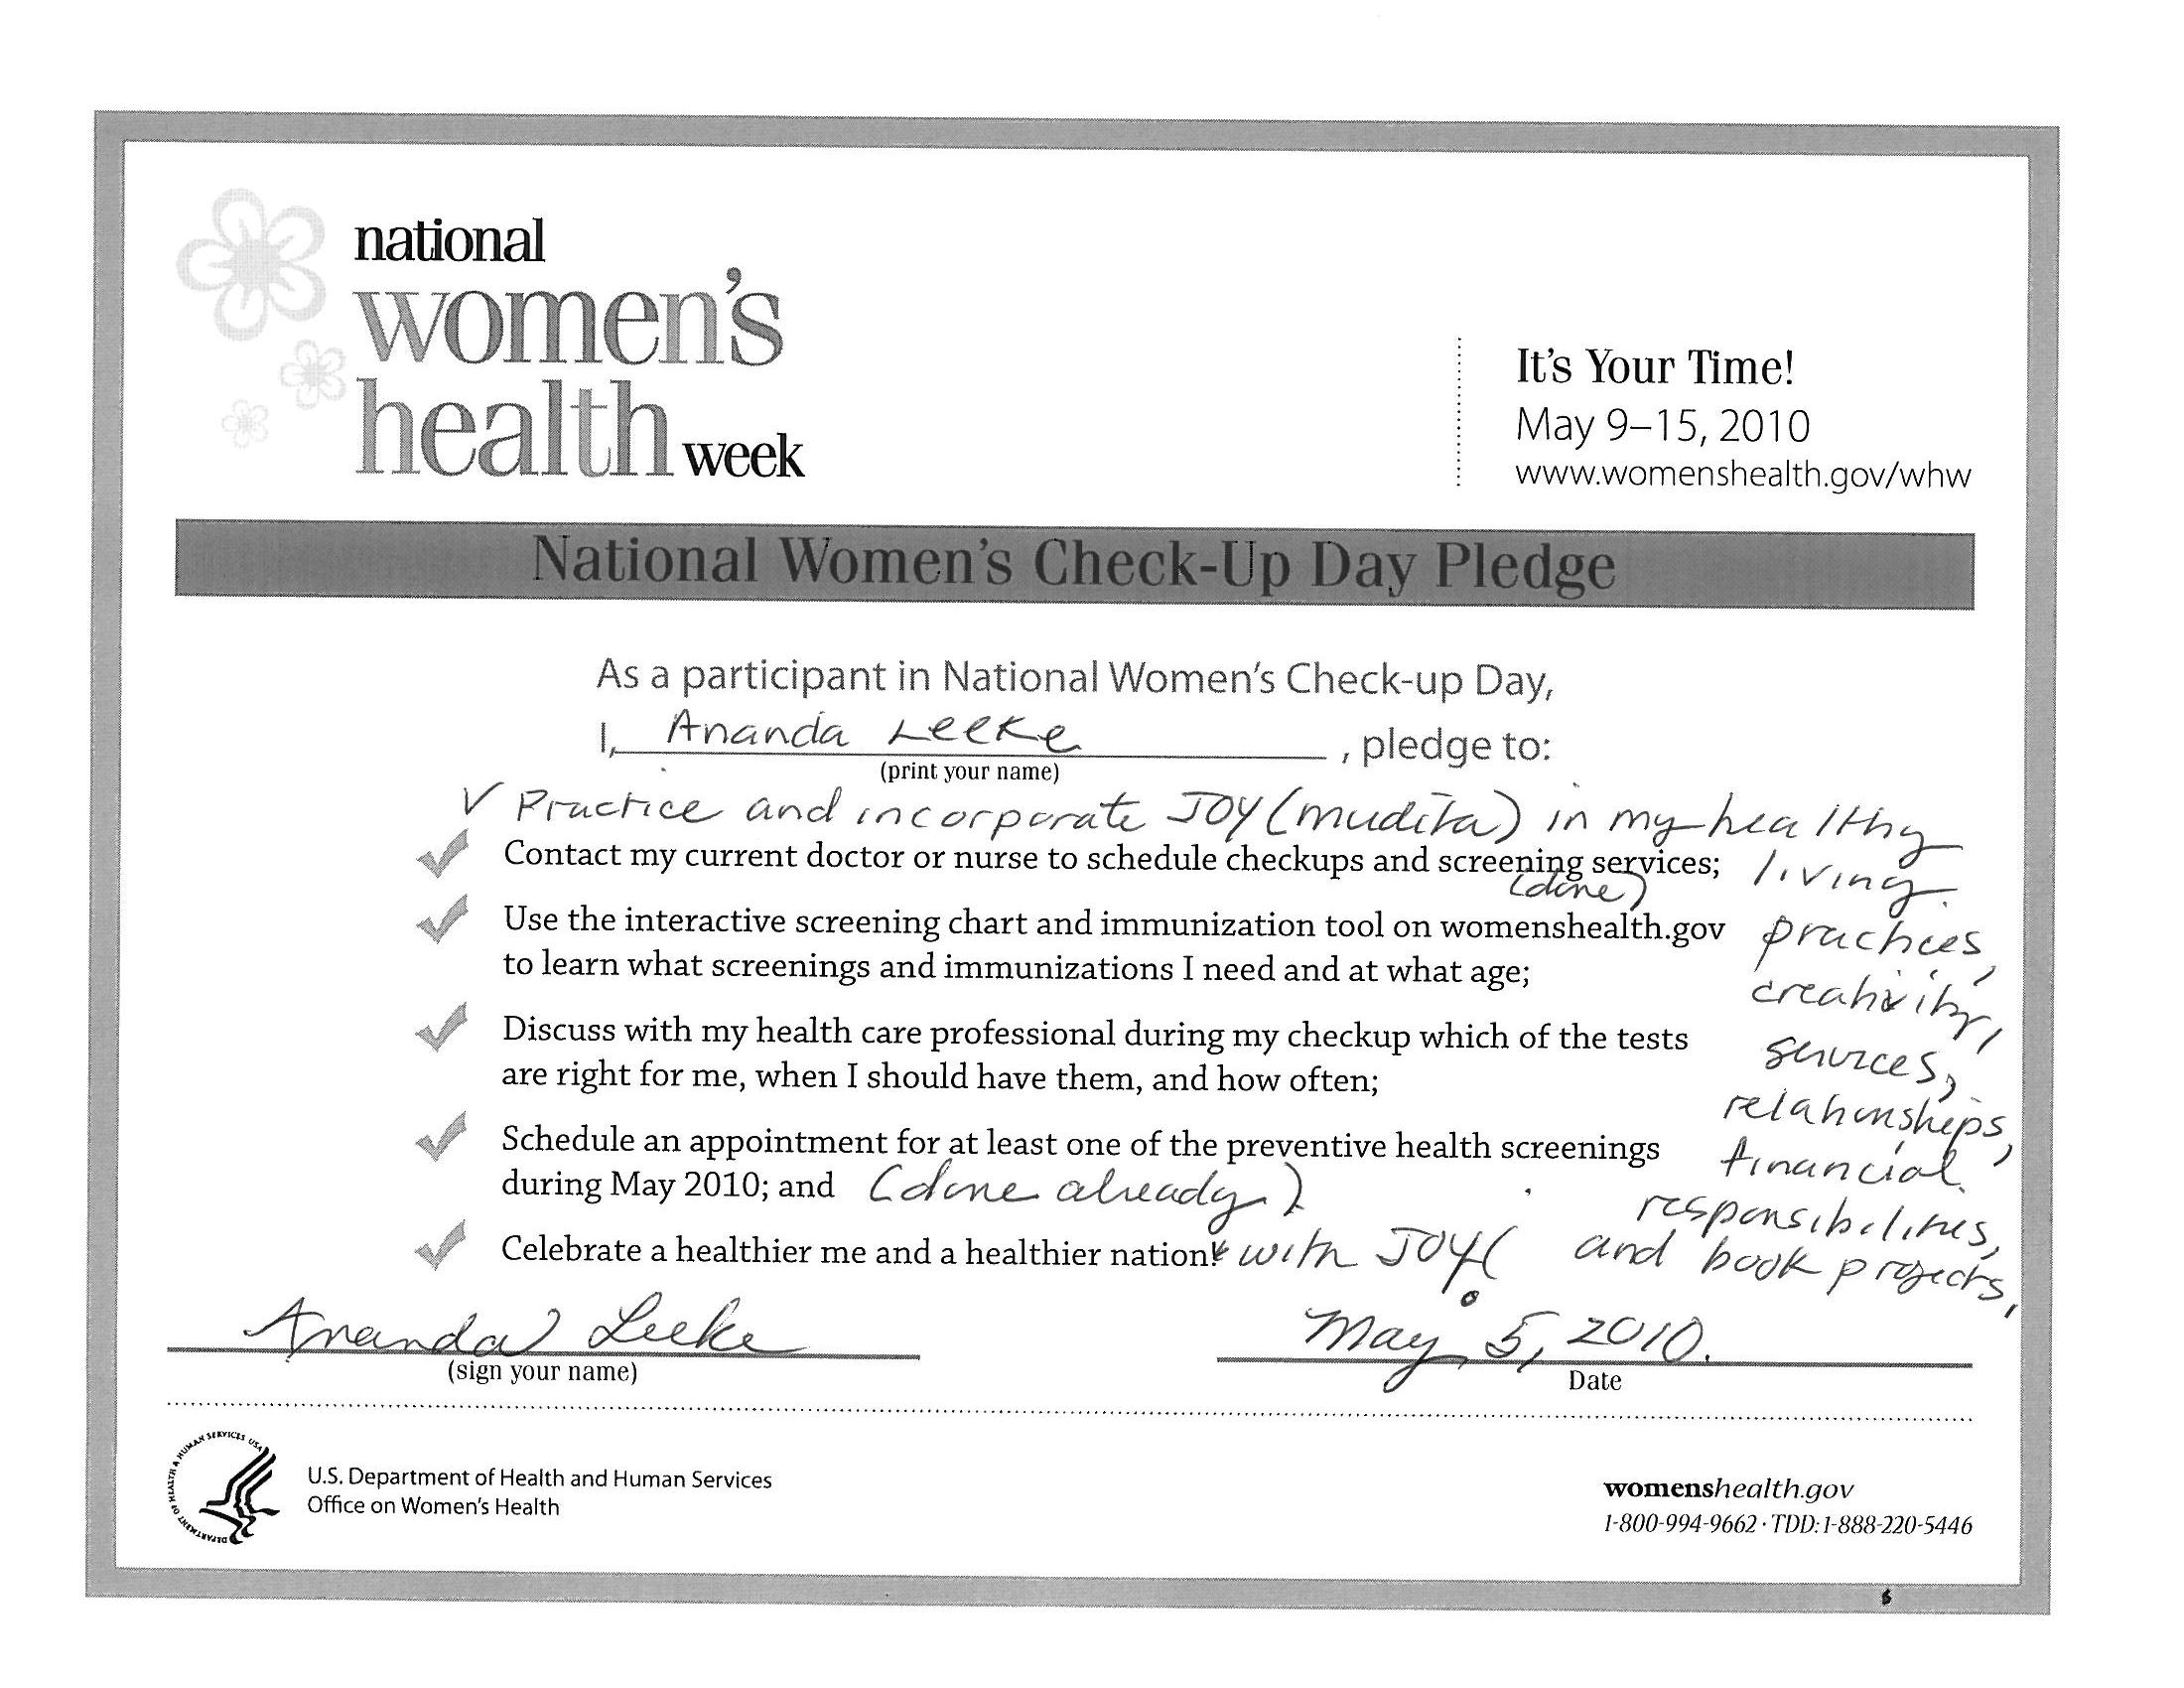 national
women's
health week
It's Your Time!
May 9–15, 2010
www.womenshealth.gov/whw
National Women's Check-Up Day Pledge
As a participant in National Women's Check-up Day,
I, Ananda Leeke , pledge to:
(print your name)
✓ Practice and incorporate JOY (mudita) in my healthy
living
practices,
creativity,
services,
relationships,
financial
responsibilities,
and book projects,
Contact my current doctor or nurse to schedule checkups and screening services;
(done)
Use the interactive screening chart and immunization tool on womenshealth.gov
to learn what screenings and immunizations I need and at what age;
Discuss with my health care professional during my checkup which of the tests
are right for me, when I should have them, and how often;
Schedule an appointment for at least one of the preventive health screenings
during May 2010; and (done already)
Celebrate a healthier me and a healthier nation! with JOY!
Ananda Leeke
(sign your name)
May 5, 2010.
Date
DEPARTMENT OF HEALTH & HUMAN SERVICES USA
U.S. Department of Health and Human Services
Office on Women's Health
womenshealth.gov
1-800-994-9662 · TDD: 1-888-220-5446